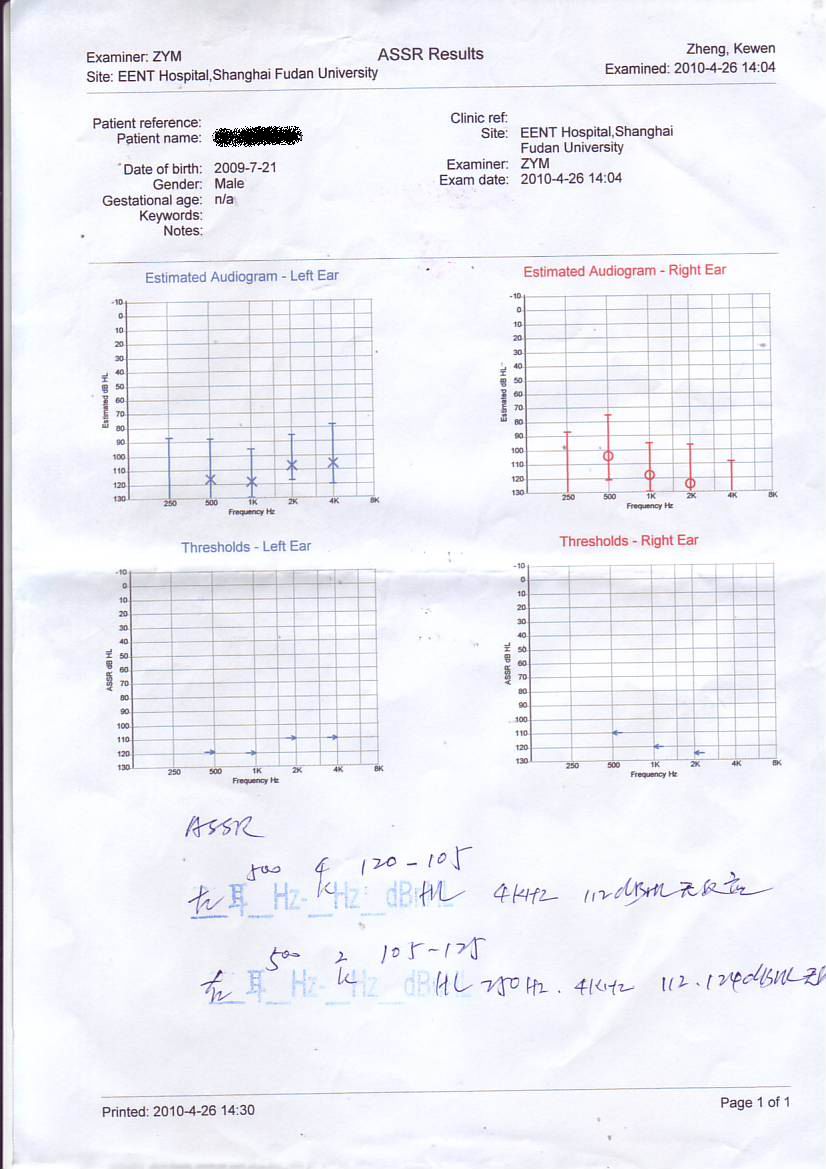 Examiner: ZYM
ASSR Results
Zheng, Kewen
Site: EENT Hospital,Shanghai Fudan University
Examined: 2010-4-26 14:04
Patient reference:
Patient name:
Date of birth: 2009-7-21
Gender: Male
Gestational age: n/a
Keywords:
Notes:
Clinic ref:
Site: EENT Hospital,Shanghai
Fudan University
Examiner: ZYM
Exam date: 2010-4-26 14:04
Estimated Audiogram - Left Ear
Estimated dB HL
-10
0
10
20
30
40
50
60
70
80
90
100
110
120
130
250 500 1K 2K 4K 8K
Frequency Hz
Estimated Audiogram - Right Ear
Estimated dB HL
-10
0
10
20
30
40
50
60
70
80
90
100
110
120
130
250 500 1K 2K 4K 8K
Frequency Hz
Thresholds - Left Ear
ASSR dB HL
-10
0
10
20
30
40
50
60
70
80
90
100
110
120
130
250 500 1K 2K 4K 8K
Frequency Hz
Thresholds - Right Ear
ASSR dB HL
-10
0
10
20
30
40
50
60
70
80
90
100
110
120
130
250 500 1K 2K 4K 8K
Frequency Hz
ASSR
500 4K 120-105
左耳 Hz- Hz dB HL 4KHz 112dBHL无反应
500 2K 105-125
耳 Hz- Hz dB HL 250Hz. 4KHz 112.124dBHL无
Printed: 2010-4-26 14:30
Page 1 of 1